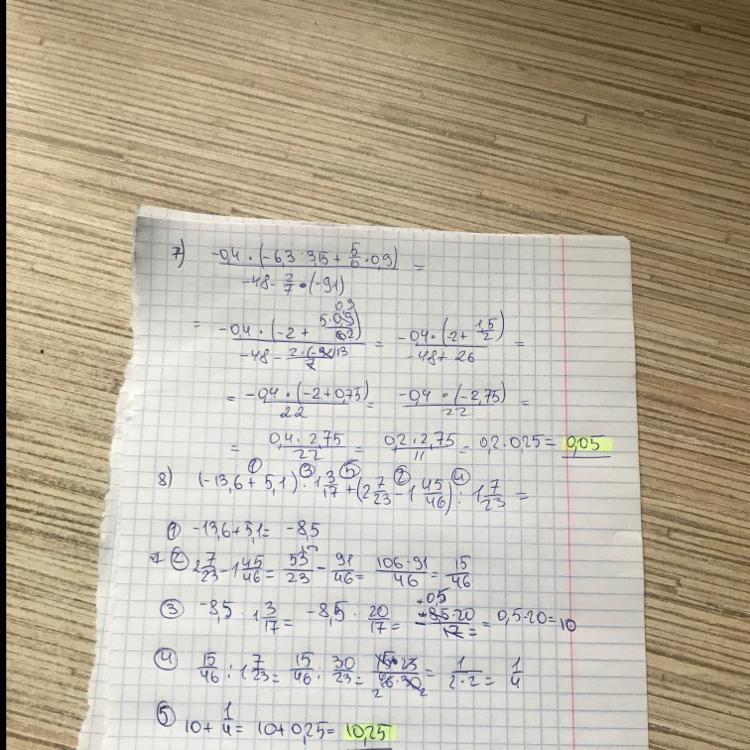 7) -0,4 · (-6,3 : 3,15 + 5/6 · 0,9) / -48 - 2/7 · (-91) =
= -0,4 · (-2 + 5·0,9 0,3 / 6 2) / -48 - 2·(-91) 13 / 7 = -0,4 · (-2 + 1,5/2) / -48 + 26 =
= -0,4 · (-2+0,75) / 22 = -0,4 · (-2,75) / 22 =
= 0,4 · 2,75 / 22 = 0,2 · 2,75 / 11 = 0,2 · 0,25 = 0,05
① ③ ⑤ ② ④
8) (-13,6 + 5,1) · 1 3/17 + (2 7/23 - 1 45/46) : 1 7/23 =
① -13,6 + 5,1 = -8,5
② 2 7/23 - 1 45/46 = 53/23 - 91/46 = 106-91/46 = 15/46
③ -8,5 · 1 3/17 = -8,5 · 20/17 = -8,5·20/17 = 0,5·20 = 10
④ 15/46 : 1 7/23 = 15/46 : 30/23 = 15·23/46·30 = 1/2·2 = 1/4
⑤ 10 + 1/4 = 10 + 0,25 = 10,25